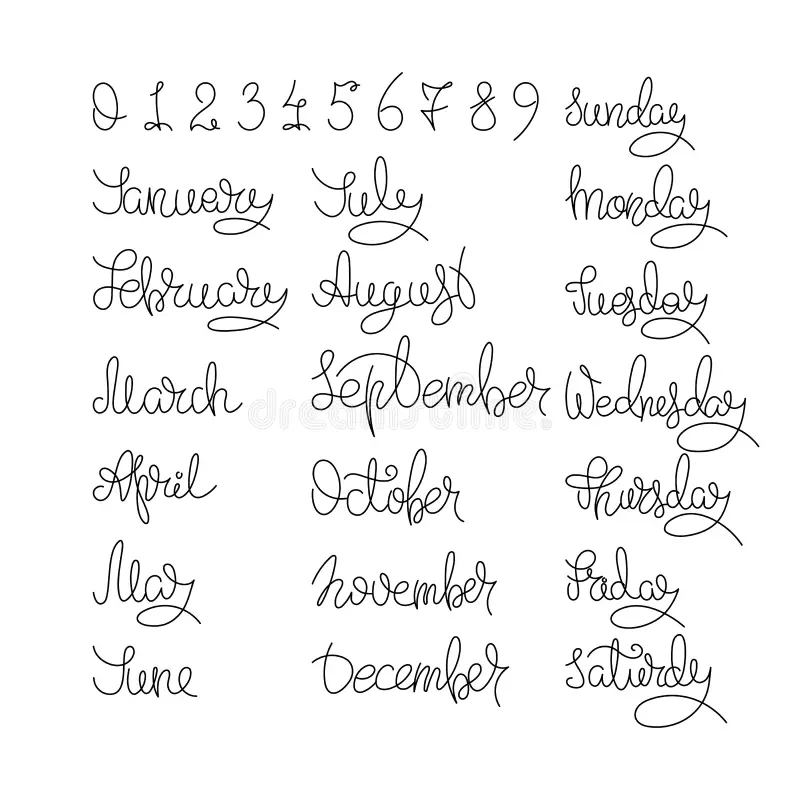 0 1 2 3 4 5 6 7 8 9
January
February
March
April
May
June
July
August
September
October
November
December
Sunday
Monday
Tuesday
Wednesday
Thursday
Friday
Saturdy
dreamstime.com